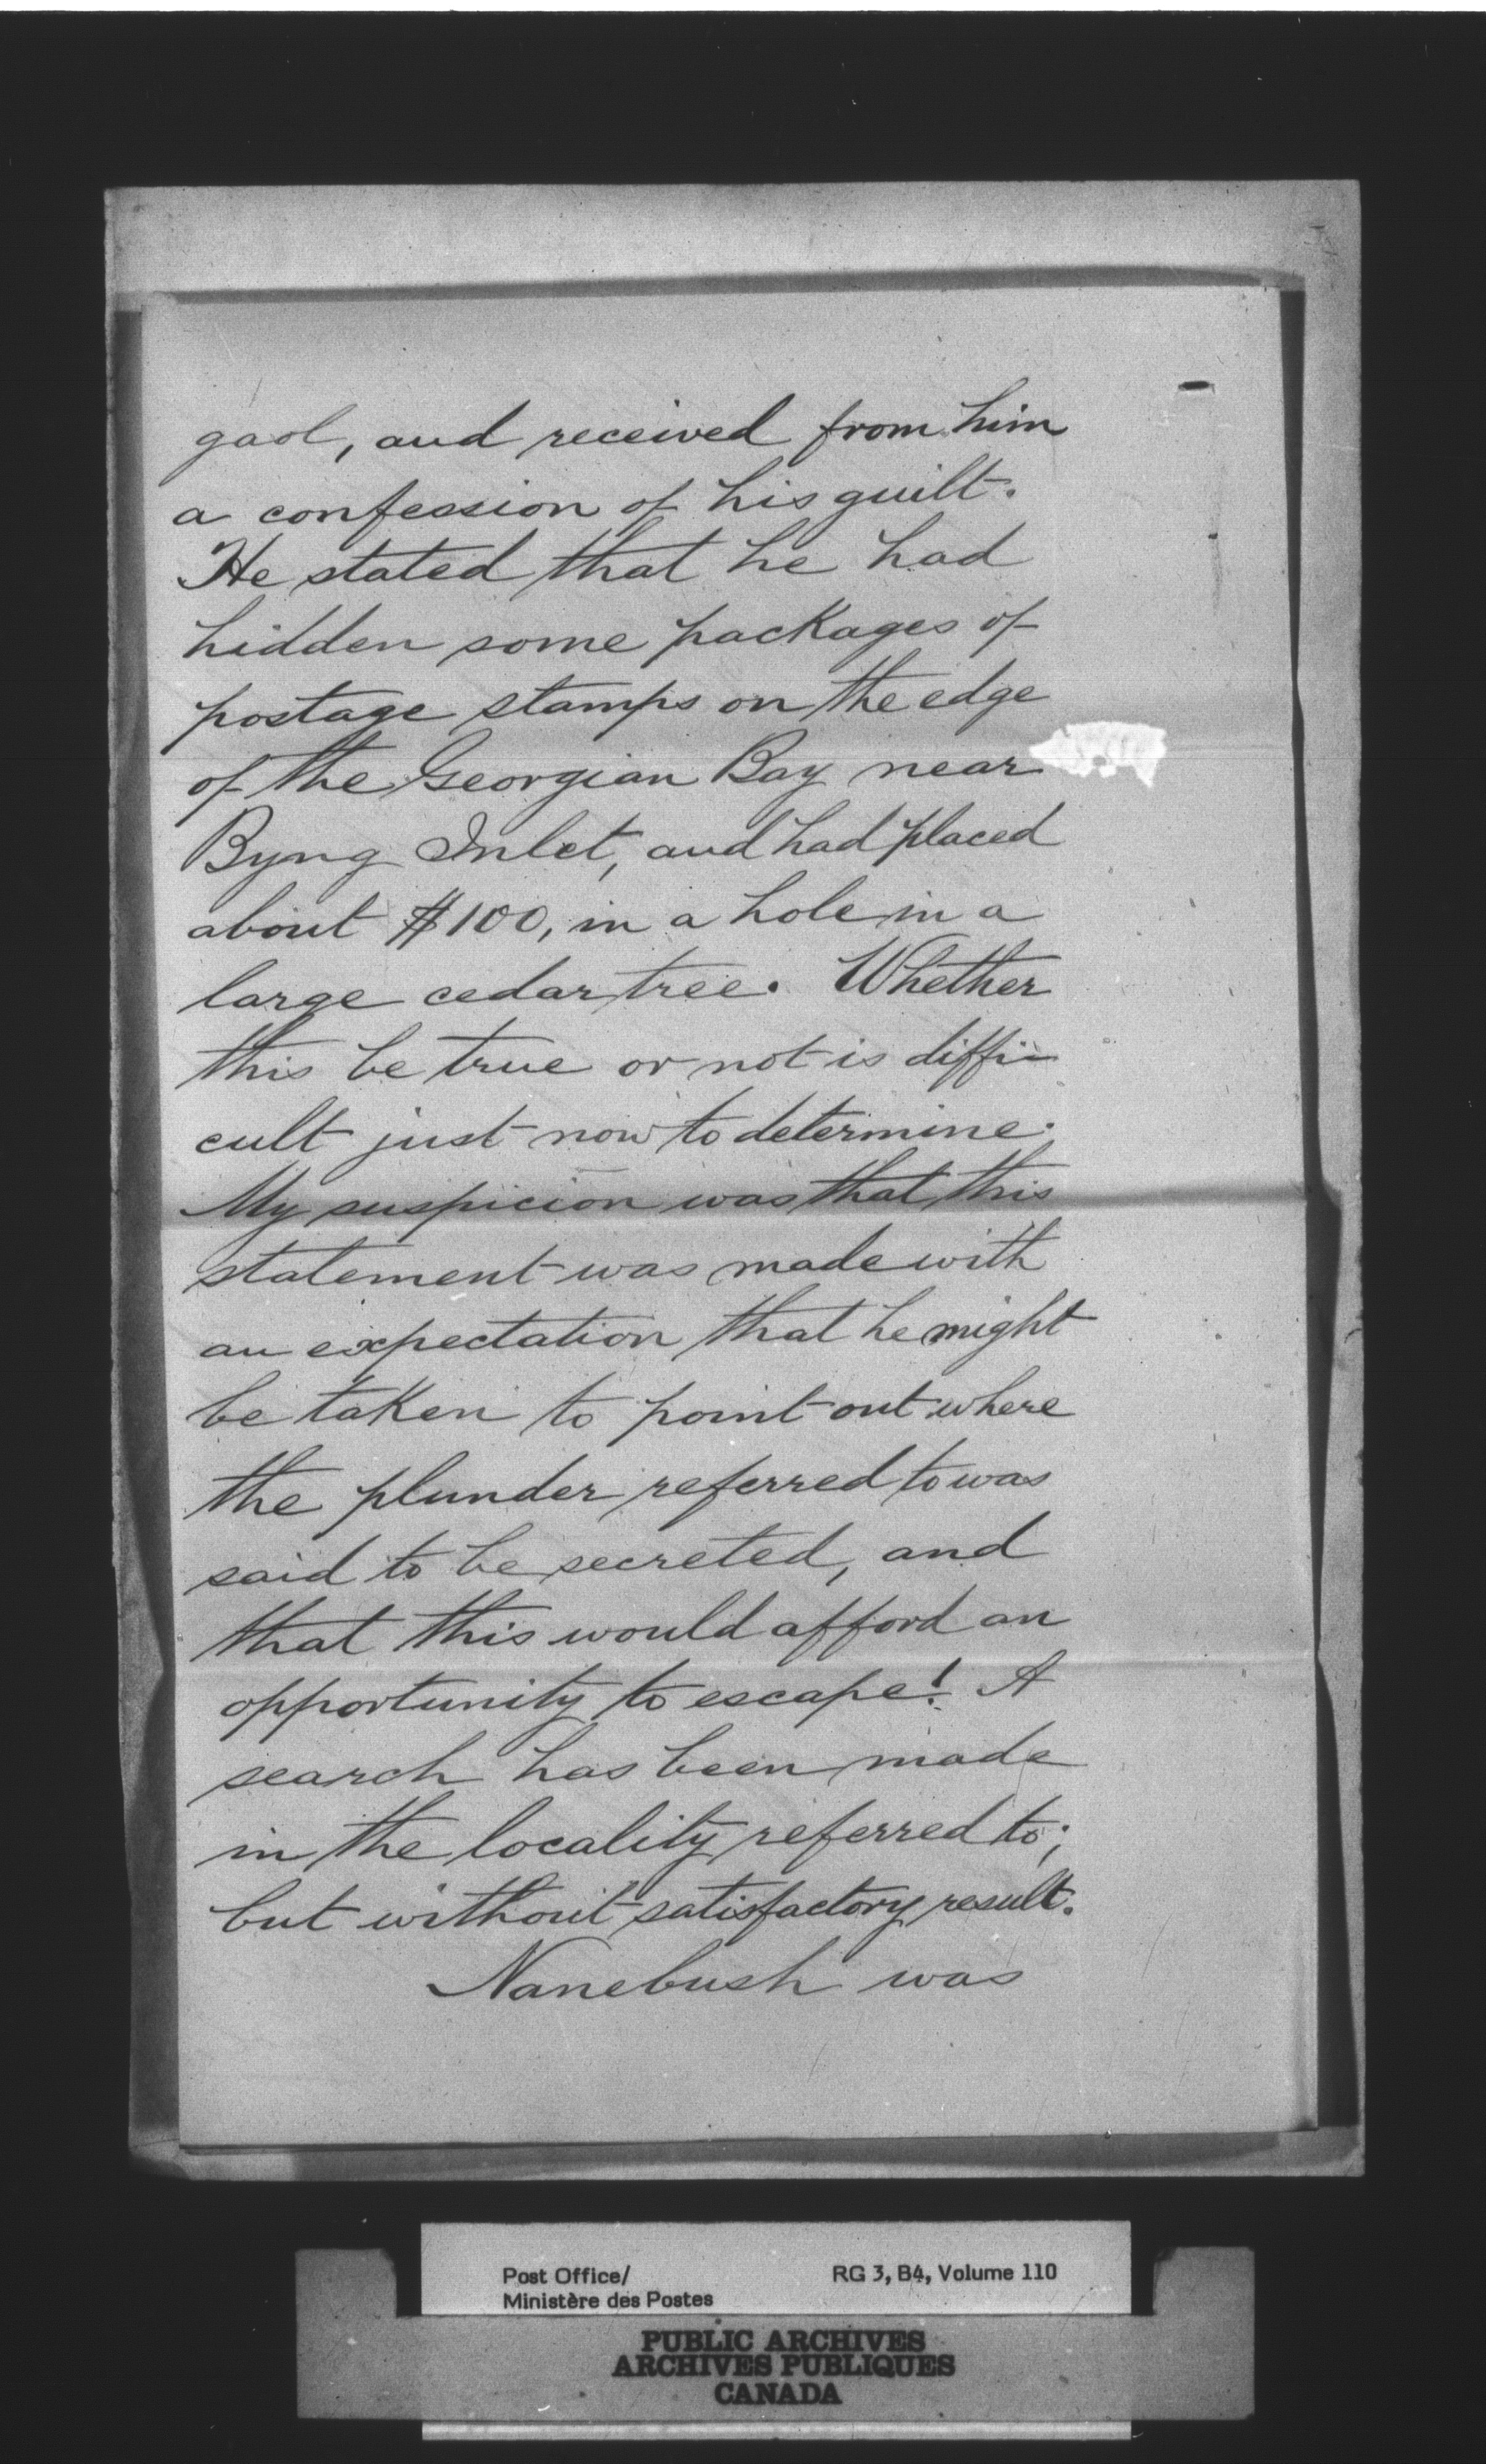 gaol, and received from him
a confession of his guilt.
He stated that he had
hidden some packages of
postage stamps on the edge
of the Georgian Bay near
Byng Inlet, and had placed
about $100, in a hole in a
large cedar tree. Whether
this be true or not is diffi-
cult just now to determine.
My suspicion was that this
statement was made with
an expectation that he might
be taken to point out where
the plunder referred to was
said to be secreted, and
that this would afford an
opportunity to escape! A
search has been made
in the locality referred to;
but without satisfactory result.
Nanebush was
Post Office/ RG 3, B4, Volume 110
Ministère des Postes
PUBLIC ARCHIVES
ARCHIVES PUBLIQUES
CANADA